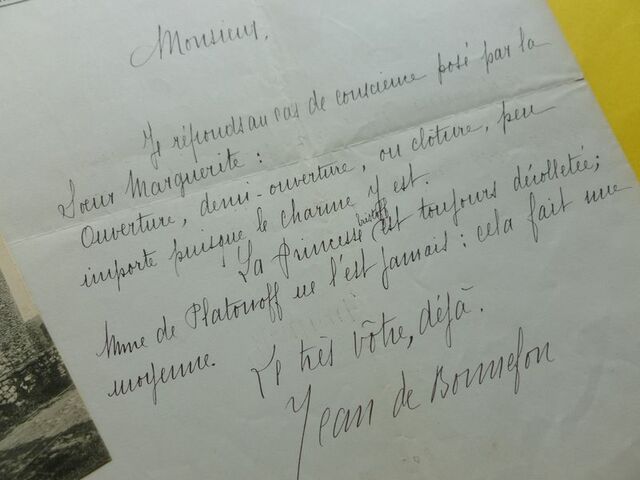 Monsieur,
Je réponds au cas de conscience posé par la
Sœur Marguerite :
Ouverture, demi-ouverture, ou clôture, peu
importe puisque le charme y est.
La Princesse est toujours décolletée ;
Mme de Platonoff ne l'est jamais : cela fait une
moyenne.
Le très vôtre, déjà.
Jean de Bonnefon